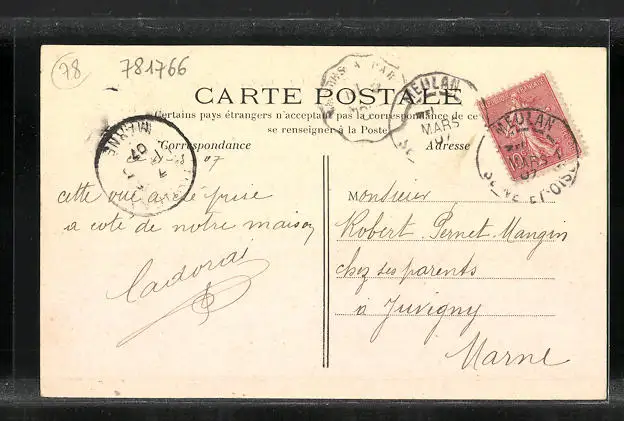 78
781766
CARTE POSTALE
Certains pays étrangers n'acceptent pas la correspondance de ce
se renseigner à la Poste
Correspondance
Adresse
07
cette vue a été prise
a coté de notre maison
Monsieur
Robert Pernet-Mangin
chez ses parents
à Juvigny
Marne
MEULAN
MARS
07
MEULAN
MARS
07
SEINE-ET-OISE
MARNE
07
10